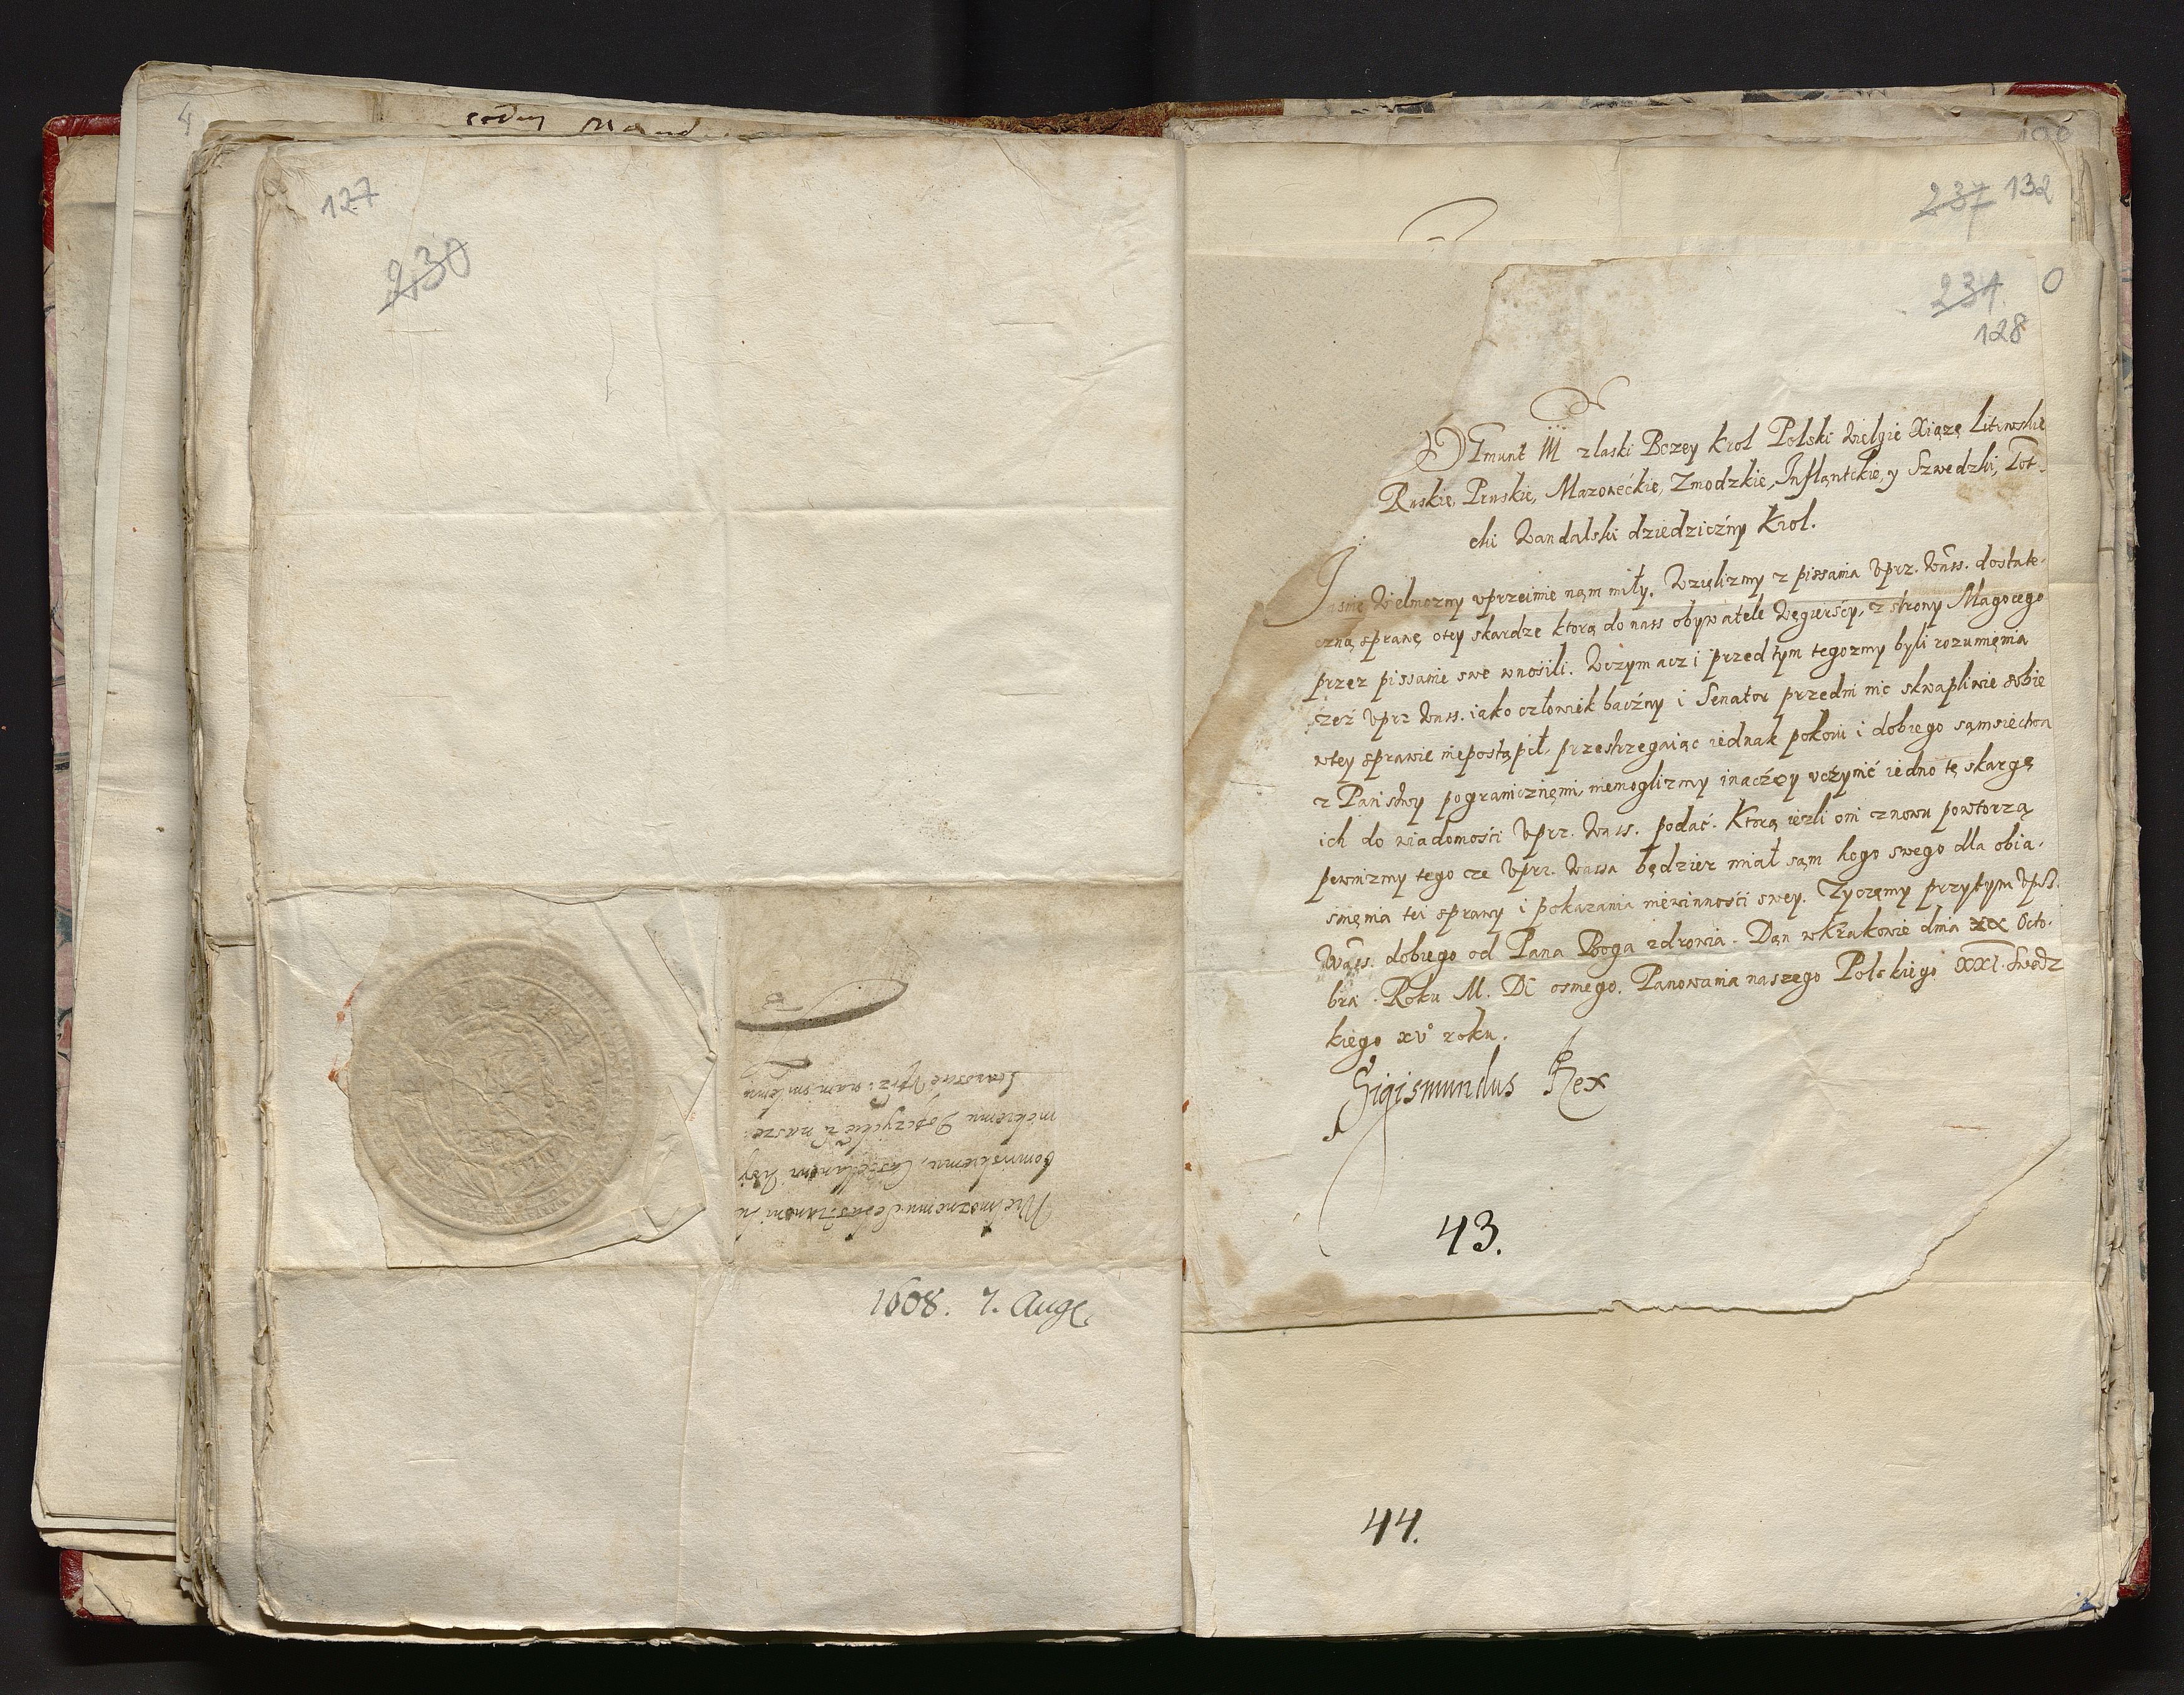 4
127
230
Wielmoznemu Sebastianowi Lu
bomirskiemu, Castellanowi
mskiemu Dobczyckie
Staroscie Uprz: nam milemu
1608. 7. Aug
237 132
234 0
128
Zÿgmunt III z laski Bozey Krol Polski Wielgie Xiązę Litewskie
Ruskie, Pruskie, Mazowećkie, Zmodzkie, Inflantckie, y Szwedzki, Got-
cki Wandalski dziedziczny Krol.
Jasnię Wielmozny uprzeimie nam miły. Wzięlizmy z pissania Uprz. Wass. dostate-
czną sprawę otey skardze ktorą do nass obywatele Węgierścy, z strony Magocego
przez pissanie swe wnosili. Wczym acz i przed tym tegozmy byli rozumięnia
zeź Uprz Wass. iako człowiek baczny i Senator przedni nic skwapliwie sobie
wtey sprawie niepostąpił, przestrzegaiąc iednak pokoiu i dobrego sąmsiectwa
z Panstwy pogranicznęmi, niemoglizmy inaczey uczynić iedno tę skargę
ich do wiadomości Uprz. Wass. podać. Ktorą iezli oni znowu powtorzą
pewnizmy tego ze Uprz. Wassa będziez miał sąm kogo swego dla obia-
snięnia tei sprawy i pokazania niewinności swey. Zyczęmy przytym Uprz.
Wass. dobrego od Pana Boga zdrowia. Dan wKrakowie dnia XX Octo-
bra. Roku M. DC osmego. Panowania naszego Polskiego XXI. Swedz
kiego XV° roku.
Sigismundus Rex
43.
44.